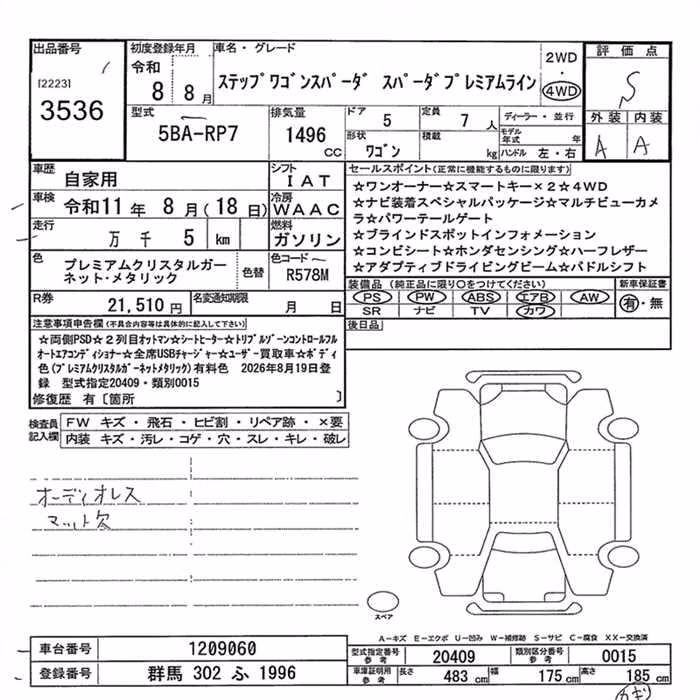 出品番号
[2223]
3536
初度登録年月
令和
8 8月
車名・グレード
ステップワゴンスパーダ スパーダプレミアムライン
2WD
・
4WD
評価点
S
外装 内装
A A
型式
5BA-RP7
排気量
1496
CC
ドア
5
定員
7 人
形状
ワゴン
積載
kg
ディーラー・並行
モデル年式 年
ハンドル 左・右
車歴
自家用
シフト
IAT
車検
令和11年 8月(18日)
冷房
WAAC
走行
万 千 5 km
燃料
ガソリン
色
プレミアムクリスタルガー
ネット・メタリック
色替
色コード
R578M
R券
21,510 円
名変通知期限
月 日
セールスポイント(正常に機能するものに限ります)
☆ワンオーナー☆スマートキー×2☆4WD
☆ナビ装着スペシャルパッケージ☆マルチビューカメ
ラ☆パワーテールゲート
☆ブラインドスポットインフォメーション
☆コンビシート☆ホンダセンシング☆ハーフレザー
☆アダプティブドライビングビーム☆パドルシフト
装備品(純正品に限り○をつけてください)
PS PW ABS エアB AW
SR ナビ TV カワ
新車保証書
有・無
後日品
注意事項申告欄(不具合内容等は具体的に記入して下さい)
☆両側PSD☆2列目オットマン☆シートヒーター☆トリプルゾーンコントロールフル
オートエアコンディショナー☆全席USBチャージャー☆ユーザー買取車☆ボディ
色(プレミアムクリスタルガーネットメタリック)有料色 2026年8月19日登
録 型式指定20409・類別0015
修復歴 有〔箇所 〕
検査員
記入欄
FW キズ・飛石・ヒビ割・リペア跡・×要
内装 キズ・汚レ・コゲ・穴・スレ・キレ・破レ
オーディオレス
マット欠
スペア
A-キズ E-エクボ U-凹み W-補修跡 S-サビ C-腐食 XX-交換済
車台番号
1209060
登録番号
群馬 302 ふ 1996
型式指定番号
参考
20409
類別区分番号
参考
0015
車庫証明用
参考
長さ 483 cm
幅 175 cm
高さ 185 cm